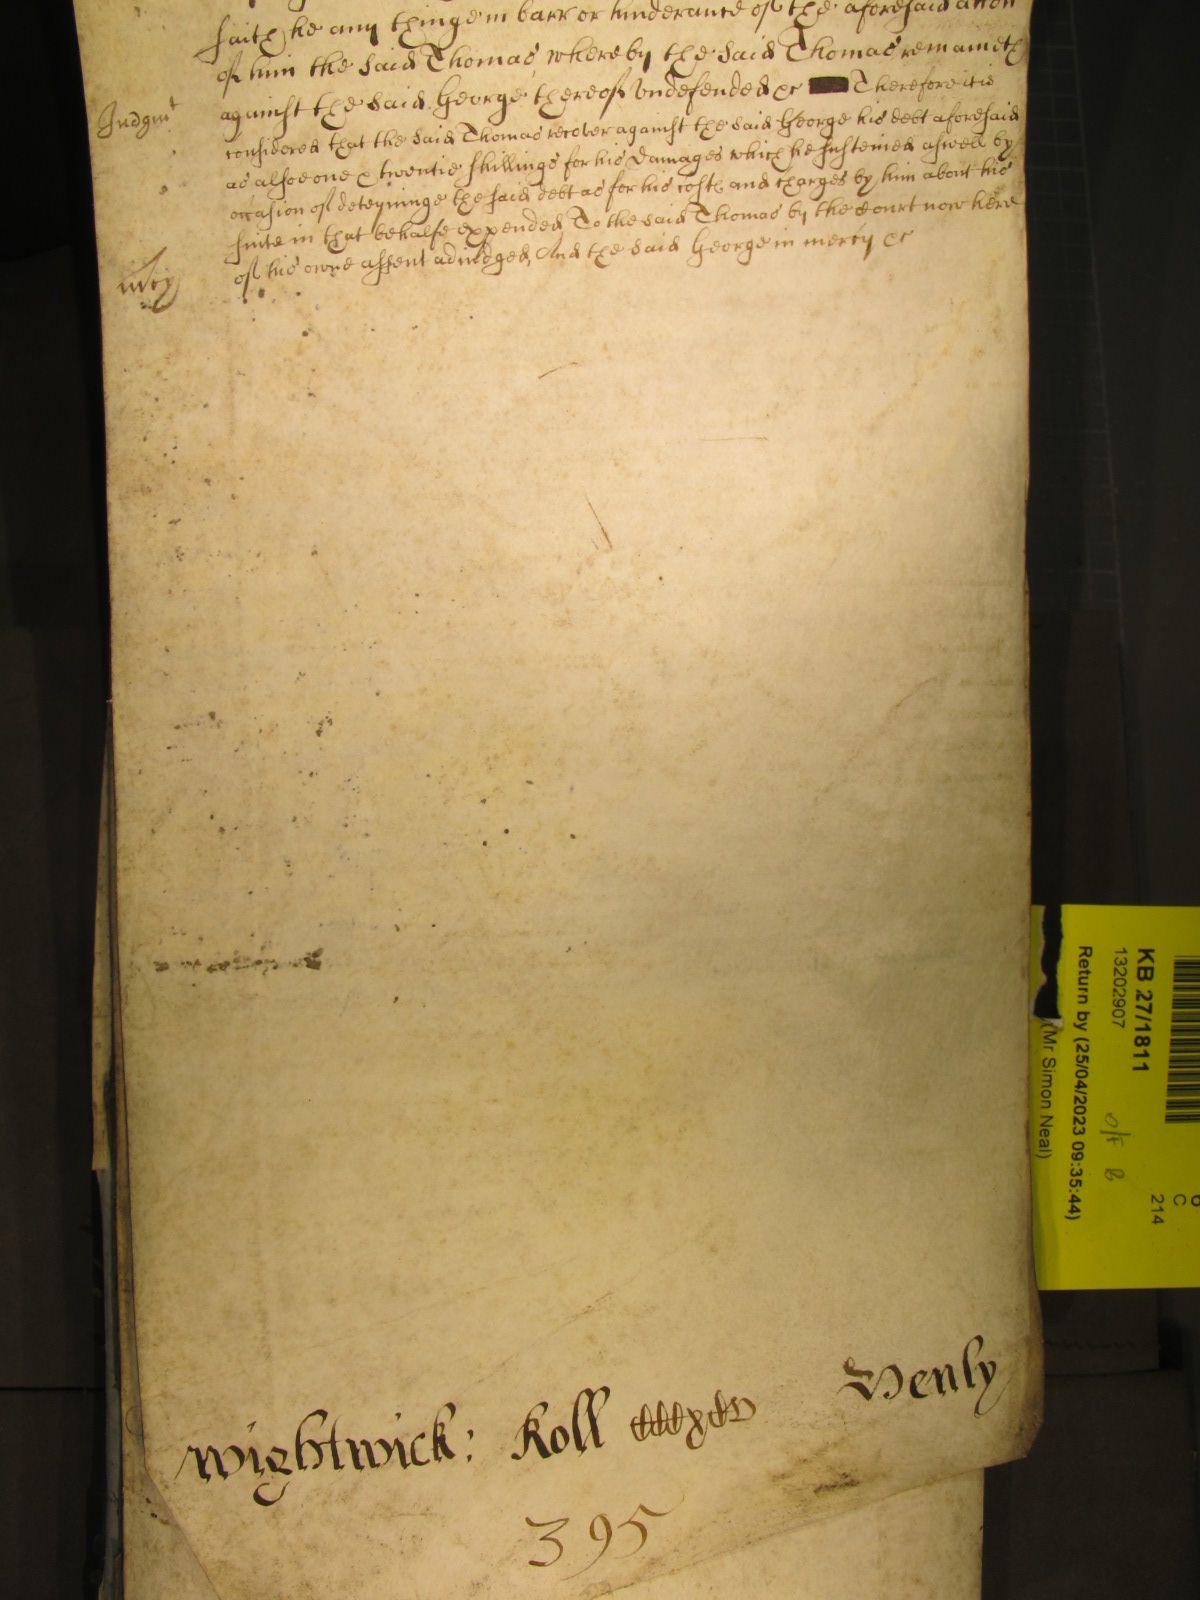 saith he any thinge in barr or hinderance of the aforesaid acion
of him the said Thomas whereby the said Thomas remaineth
against the said George thereof undefended &c Therefore it is
Judgmt
considered that the said Thomas recover against the said George his debt aforesaid
as alsoe one & twentie shillings for his damages which he susteined aswell by
occasion of deteyninge the said debt as for his costs and charges by him about his
suite in that behalfe expended To the said Thomas by the Court now here
of his owne assent adiudged And the said George in mercy &c
mcy
Wightwick: Roll cccxcv
Henly
395
KB 27/1811
13202907
Return by (25/04/2023 09:35:44)
(Mr Simon Neal)
O/F B
6
C
214